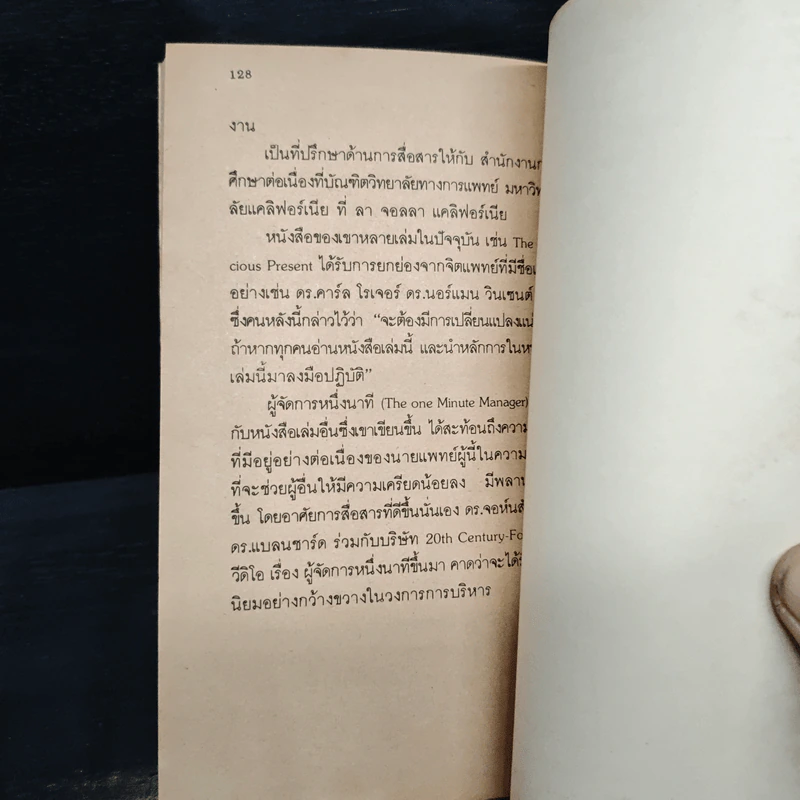 128
งาน
เป็นที่ปรึกษาด้านการสื่อสารให้กับ สำนักงาน
ศึกษาต่อเนื่องที่บัณฑิตวิทยาลัยทางการแพทย์ มหาวิท
ลัยแคลิฟอร์เนีย ที่ ลา จอลลา แคลิฟอร์เนีย
หนังสือของเขาหลายเล่มในปัจจุบัน เช่น The
cious Present ได้รับการยกย่องจากจิตแพทย์ที่มีชื่อ
อย่างเช่น ดร.คาร์ล โรเจอร์ ดร.นอร์แมน วินเซนต์
ซึ่งคนหลังนี้กล่าวไว้ว่า “จะต้องมีการเปลี่ยนแปลงแน่
ถ้าหากทุกคนอ่านหนังสือเล่มนี้ และนำหลักการใน
เล่มนี้มาลงมือปฏิบัติ”
ผู้จัดการหนึ่งนาที (The one Minute Manager)
กับหนังสือเล่มอื่นซึ่งเขาเขียนขึ้น ได้สะท้อนถึงความ
ที่มีอยู่อย่างต่อเนื่องของนายแพทย์ผู้นี้ในความ
ที่จะช่วยผู้อื่นให้มีความเครียดน้อยลง มีพลาน
ขึ้น โดยอาศัยการสื่อสารที่ดีขึ้นนั่นเอง ดร.จอห์นสั
ดร.แบลนชาร์ด ร่วมกับบริษัท 20th Century-Fo
วีดิโอ เรื่อง ผู้จัดการหนึ่งนาทีขึ้นมา คาดว่าจะได้
นิยมอย่างกว้างขวางในวงการการบริหาร